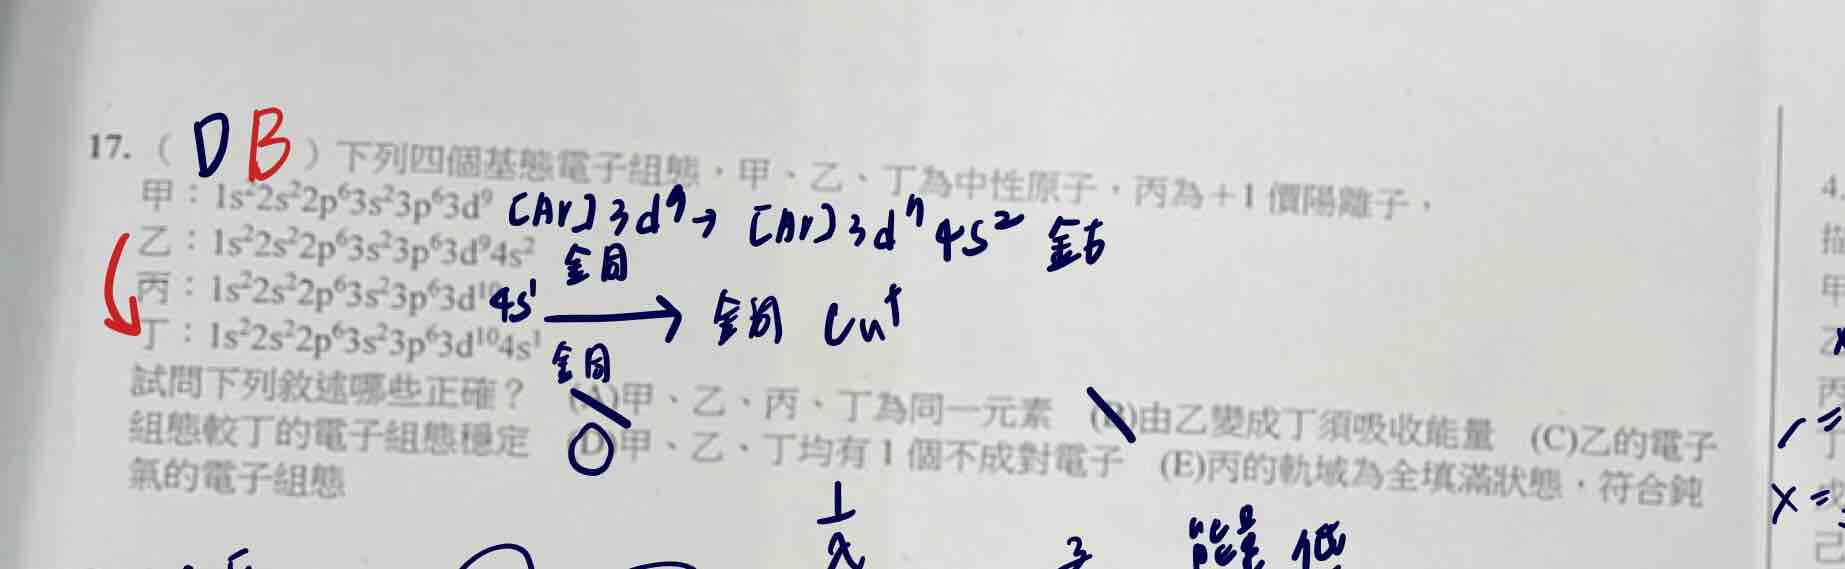 17. ( D B ) 下列四個基態電子組態，甲、乙、丁為中性原子，丙為+1價陽離子，
甲：1s²2s²2p⁶3s²3p⁶3d⁹ [Ar]3d⁹→ [Ar]3dⁿ4s² 鈷
乙：1s²2s²2p⁶3s²3p⁶3d⁹4s² 銅
丙：1s²2s²2p⁶3s²3p⁶3d¹⁰ 4s¹ → Cu⁺
丁：1s²2s²2p⁶3s²3p⁶3d¹⁰4s¹ 銅
試問下列敘述哪些正確？ (A)甲、乙、丙、丁為同一元素 (B)由乙變成丁須吸收能量 (C)乙的電子
組態較丁的電子組態穩定 (D)甲、乙、丁均有1個不成對電子 (E)丙的軌域為全填滿狀態，符合鈍
氣的電子組態
1
λ
能量 低
4
甲
乙
丙
丁
己